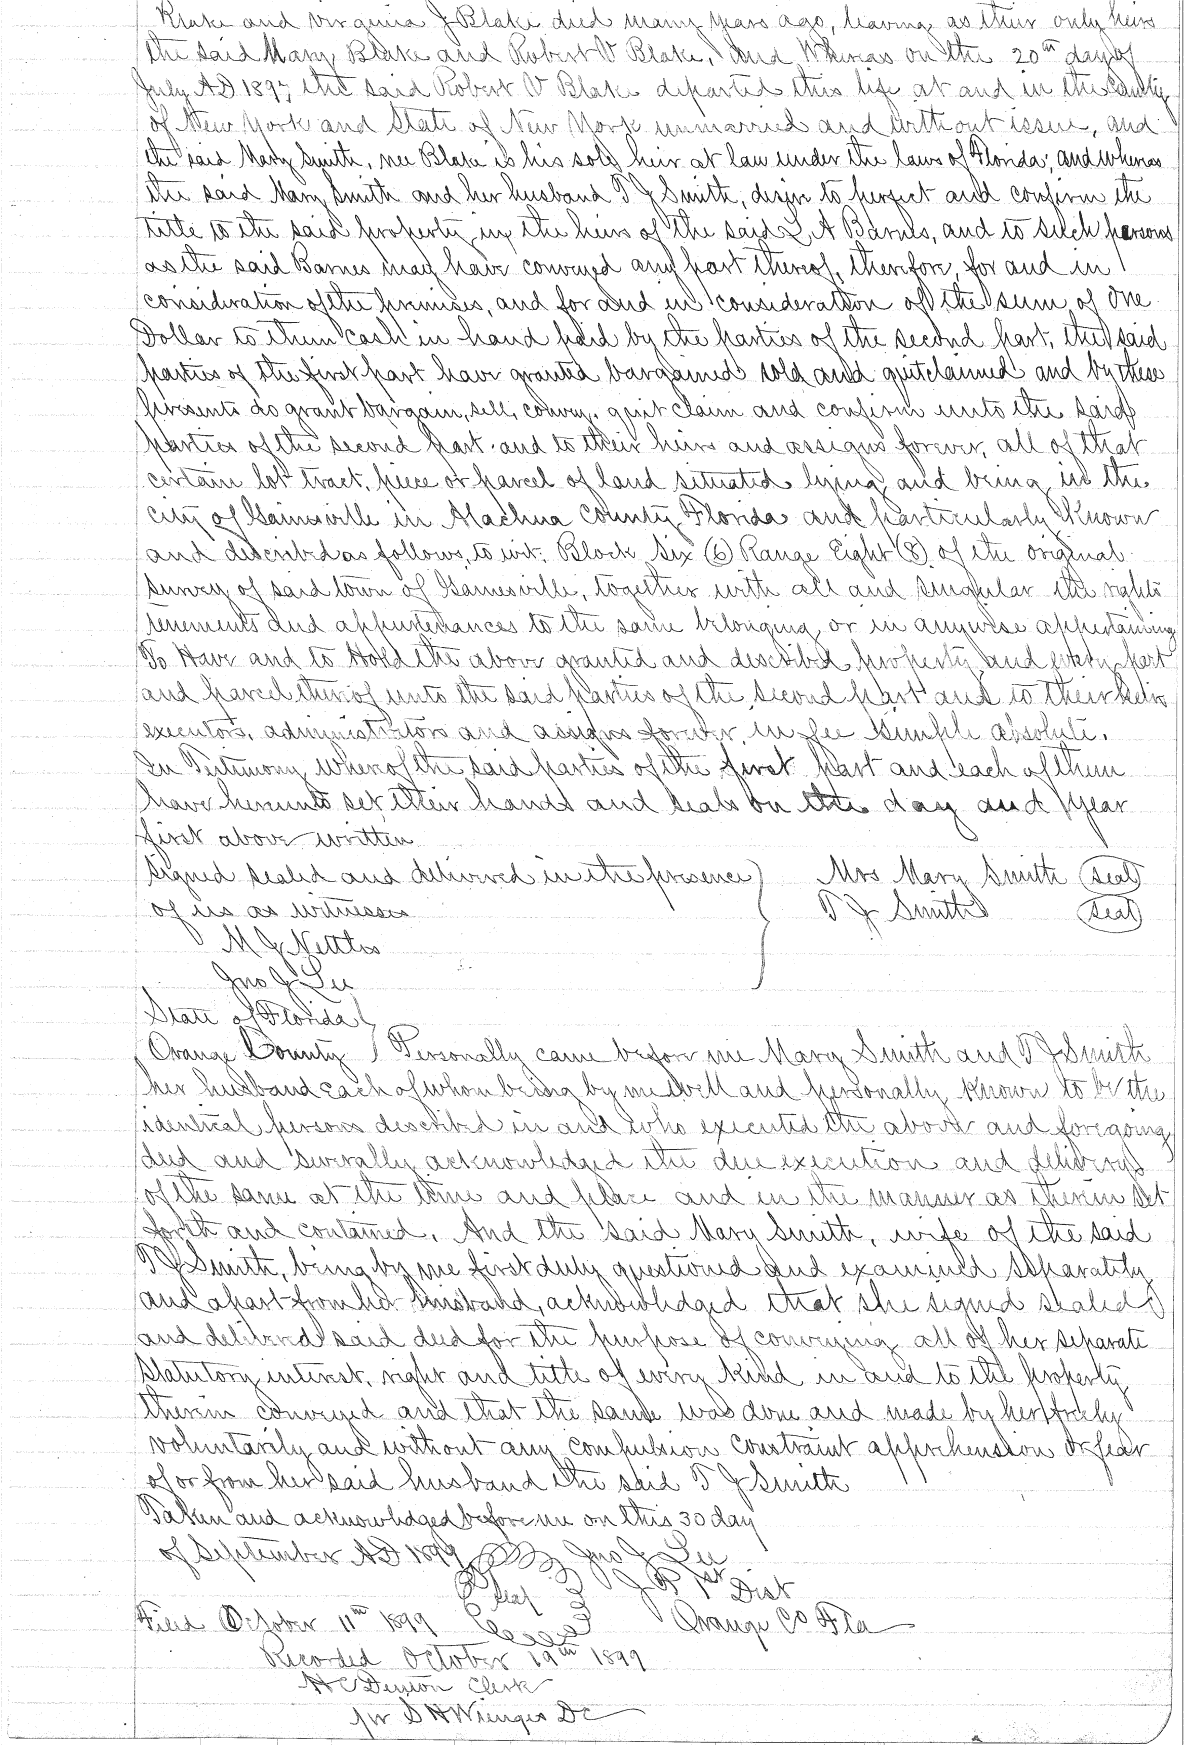 Blake and Virginia J Blake died many years ago, leaving as their only heirs
the said Mary Blake and Robert V Blake, And Whereas on the 20th day of
July AD 1897 the said Robert V Blake departed this life at and in the County
of New York and State of New York unmarried and without issue, and
the said Mary Smith, nee Blake is his sole heir at law under the laws of Florida; and whereas
the said Mary Smith and her husband T J Smith, desire to perfect and confirm the
title to the said property in the heirs of the said L A Barnes, and to such persons
as the said Barnes may have conveyed any part thereof, therefore, for and in
consideration of the premises, and for and in consideration of the sum of One
Dollar to them cash in hand paid by the parties of the second part, the said
parties of the first part have granted bargained sold and quitclaimed and by these
presents do grant bargain, sell, convey, quit claim and confirm unto the said
parties of the second part and to their heirs and assigns forever, all of that
certain lot tract, piece or parcel of land situated lying and being in the
city of Gainesville in Alachua County Florida and particularly known
and described as follows, to wit: Block Six (6) Range Eight (8) of the original
survey of said town of Gainesville, together with all and singular the rights
tenements and appurtenances to the same belonging or in anywise appertaining
To Have and to Hold the above granted and described property and every part
and parcel thereof unto the said parties of the second part and to their heirs
executors, administrators and assigns forever, in fee simple absolute.
In Testimony Whereof the said parties of the first part and each of them
have hereunto set their hands and seals on the day and year
first above written
Signed sealed and delivered in the presence } Mrs Mary Smith (seal)
of us as witnesses T J Smith (seal)
M J Nettles
Jno J Lee
State of Florida }
Orange County } Personally came before me Mary Smith and T J Smith
her husband each of whom being by me well and personally known to be the
identical persons described in and who executed the above and foregoing
deed and severally acknowledged the due execution and delivery
of the same at the time and place and in the manner as therein set
forth and contained. And the said Mary Smith, wife of the said
T J Smith, being by me first duly questioned and examined separately
and apart from her husband, acknowledged that she signed sealed
and delivered said deed for the purpose of conveying all of her separate
statutory interest, right and title of every kind in and to the property
therein conveyed and that the same was done and made by her freely
voluntarily and without any compulsion constraint apprehension or fear
of or from her said husband the said T J Smith
Taken and acknowledged before me on this 30 day
of September AD 1899 Jno J Lee
Seal J P 1st Dist
Filed October 11th 1899 Orange Co Fla
Recorded October 19th 1899
H C Denton Clerk
per S H Wienges DC